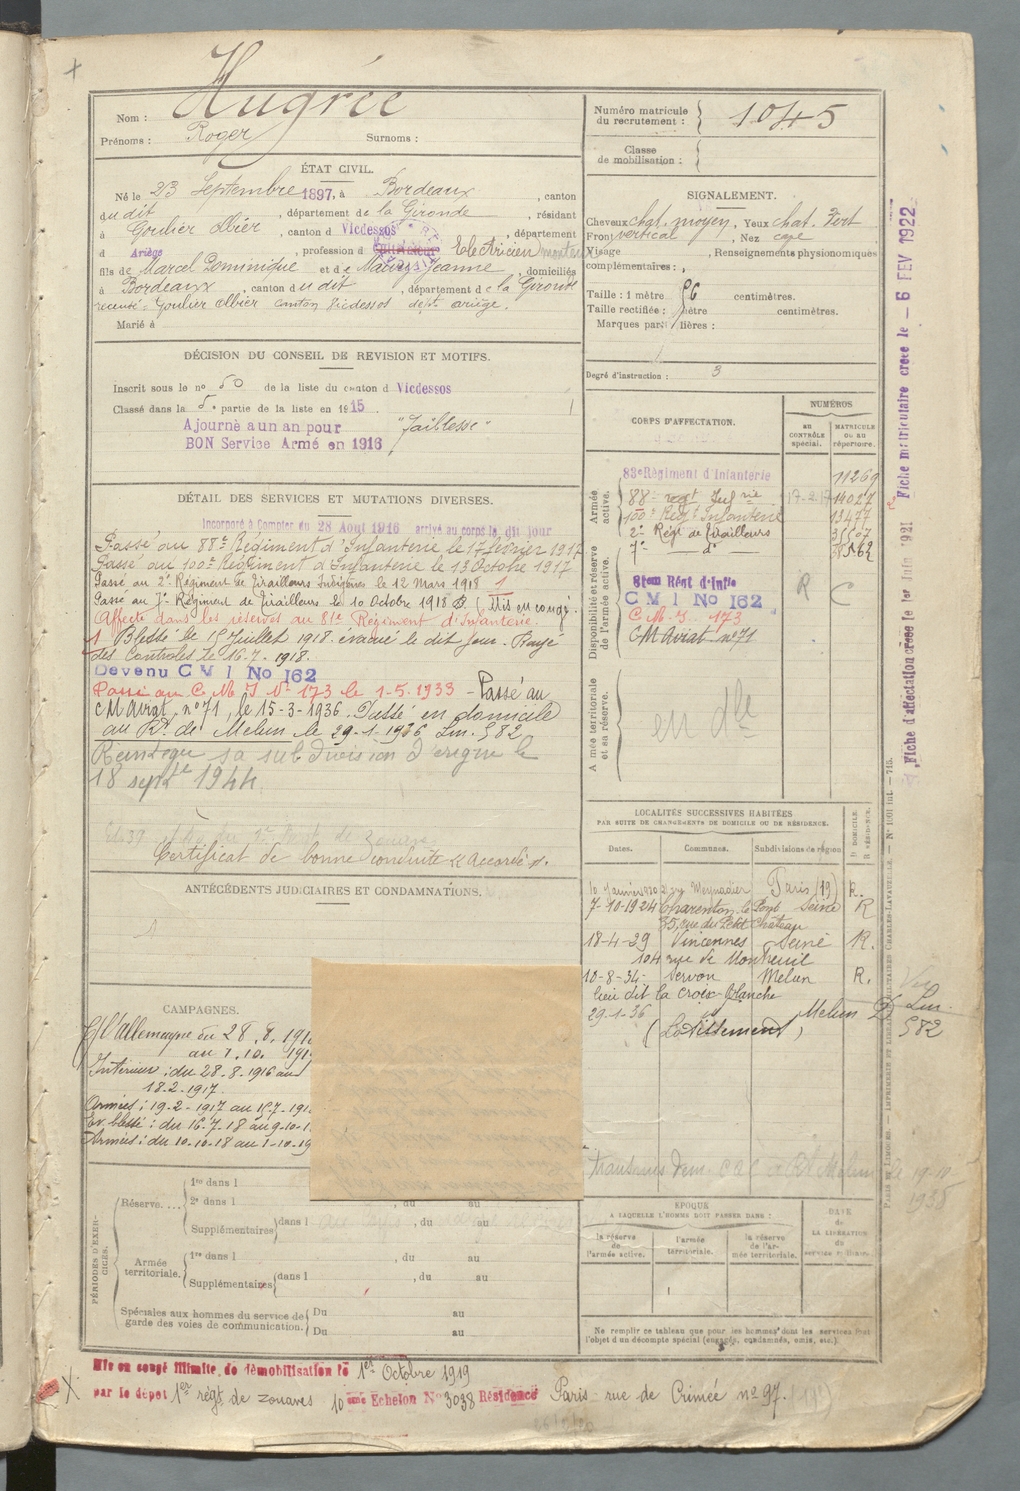 Nom : Hugrée
Prénoms : Roger Surnoms :
ÉTAT CIVIL.
Né le 23 Septembre 1897, à Bordeaux, canton
dudit, département de la Gironde, résidant
à Goulier Olbier, canton d Vicdessos, département
d Ariège, profession d Electricien monteur
fils de Marcel Dominique et de Jeanne, domiciliés
à Bordeaux, canton dudit, département de la Gironde
recensé Goulier Olbier canton Vicdessos dept ariège.
Marié à
DÉCISION DU CONSEIL DE REVISION ET MOTIFS.
Inscrit sous le no 50 de la liste du canton d Vicdessos
Classé dans la 5e partie de la liste en 1915
Ajourné a un an pour "faiblesse"
BON Service Armé en 1916
DÉTAIL DES SERVICES ET MUTATIONS DIVERSES.
Incorporé à Compter du 28 Aout 1916 arrivé au corps le dit jour
Passé au 88e Régiment d'Infanterie le 17 février 1917
Passé au 100e Régiment d'Infanterie le 13 Octobre 1917
Passé au 2e Régiment de Tirailleurs Indigènes le 12 Mars 1918 1
Passé au 7e Régiment de Tirailleurs le 10 Octobre 1918 (Mis en congé.
Affecté dans les réserves au 81e Régiment d'Infanterie.
1 Blessé le 15 Juillet 1918. évacué le dit jour. Rayé
des Controles le 16-7-1918.
Devenu C M I No 162
Passé au C M I No 173 le 1-5-1933 - Passé au
CM Aviat. no 71, le 15-3-1936. Passé en domicile
au Rt de Melun le 29-1-1936 Lm. 982
Réintègre sa subdivision d'origine le
18 septe 1944
Certificat de bonne conduite "Accordé".
ANTÉCÉDENTS JUDICIAIRES ET CONDAMNATIONS.
CAMPAGNES.
C/ l'allemagne du 28.8.191
au 1.10.191
Intérieur : du 28-8-1916 au
18-2-1917
Armées : 19-2-1917 au 15-7-191
Ev. blessé : du 16-7-18 au 9-10-1
Armées : du 10-10-18 au 1-10-19
PÉRIODES D'EXERCICES.
Réserve....
1re dans l
2e dans l , du au
Supplémentaires dans l , du au
Armée territoriale.
1re dans l , du au
Supplémentaires dans l , du au
Spéciales aux hommes du service de garde des voies de communication.
Du au
Du au
Mis en congé illimité de démobilisation le 1er Octobre 1919
par le dépot 1er régt de zouaves 10ème Echelon No 3038 Résidence Paris rue de Crimée no 97. (19e)
Numéro matricule du recrutement : 1045
Classe de mobilisation :
SIGNALEMENT.
Cheveux chat. moyen, Yeux chat. vert
Front vertical, Nez cave
Visage , Renseignements physionomiques
complémentaires :
Taille : 1 mètre centimètres.
Taille rectifiée : mètre centimètres.
Marques particulières :
Degré d'instruction : 3
CORPS D'AFFECTATION.
NUMÉROS
EN CONTRÔLE spécial.
MATRICULE OU AU répertoire.
Armée active.
83e Régiment d'Infanterie 11269
88e regt Infrie 17-2-17 14027
100e Regt Infanterie 13477
2e Régt de Tirailleurs
7e d°
Disponibilité et réserve de l'armée active.
81em Rént d'Infie
C M I No 162
C. M. I. 173
CM Aviat no 71
R C
Armée territoriale et sa réserve.
en dle
LOCALITÉS SUCCESSIVES HABITÉES
PAR SUITE DE CHANGEMENTS DE DOMICILE OU DE RÉSIDENCE.
Dates. Communes. Subdivisions de région D. DOMICILE. R. RÉSIDENCE.
10 Janvier 1920 2 rue Meynadier Paris (19) R.
7-10-1924 Charenton le Pont Seine R
35, rue du Petit Chateau
18-4-29 Vincennes Seine R.
104 rue de Montreuil
10-8-34- Servon Melun R.
lieu dit la Croix Blanche
29-1-36 Melun D Lm 982
(Lotissement)
transmis dem. C à R Melun le 19-10
1935
EPOQUE
A LAQUELLE L'HOMME DOIT PASSER DANS :
la réserve de l'armée active.
l'armée territoriale.
la réserve de l'armée territoriale.
DATE de LA LIBÉRATION du service militaire.
Ne remplir ce tableau que pour les hommes dont les services font
l'objet d'un décompte spécial (engagés, condamnés, omis, etc.).
Fiche matriculaire créée le - 6 FEV 1922
Fiche d'affectation créée le 1er Juin 1921
PARIS ET LIMOGES. — IMPRIMERIE ET LIBRAIRIE MILITAIRES CHARLES-LAVAUZELLE. — No 1201 int. — 715.